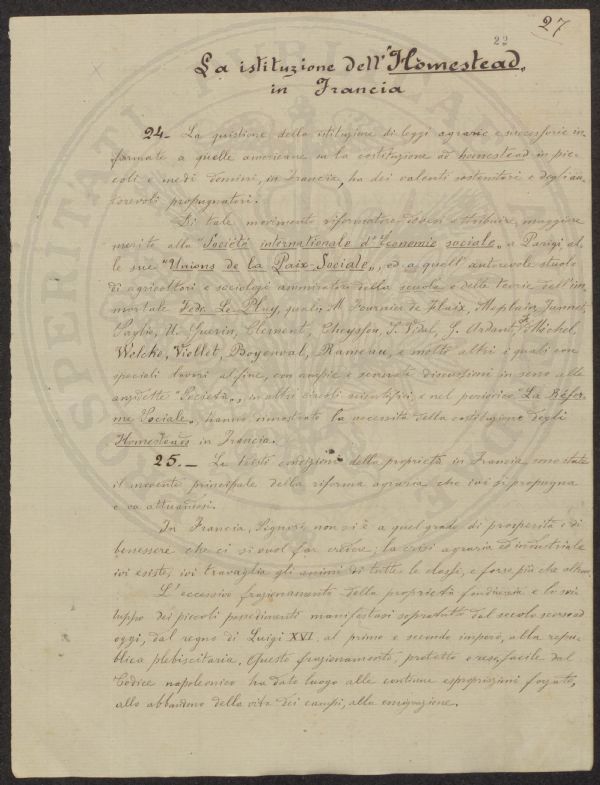 27
22
La istituzione dell'"Homestead„
in Francia
24.- La quistione della istituzione di leggi agrarie e successorie in-
formate a quelle americane su la costituzione ad homestead in pic-
coli e medi domini, in Francia, ha dei valenti sostenitori e degli au-
torevoli propugnatori.
Di tale movimento riformatore, devesi attribuire maggiore
merito alla "Société internationale d'Economie sociale„ a Parigi al-
le sue "Unions de la Paix-Sociale„, ed a quell'autorevole stuolo
di agricoltori e sociologi ammiratori della scuola e delle teorie dell'im-
mortale Fedr. Le Play, quali, M. Fournier de Flaix, Jannet,
U. Guerin, Clement, Cheysson, J. Vidal, J. Ardant, F. Michel,
Welche, Viollet, Boyenval, Rameau, e molti altri i quali con
speciali lavori al fine, con ampie e severate discussioni in seno alle
anzidette "Società„, in altri circoli scientifici, e nel periodico "La Réfor-
me Sociale„ hanno dimostrato la necessità della costituzione degli
Homesteads in Francia.
25.- Le tristi condizioni della proprietà in Francia, sono state
il movente principale della riforma agraria che ivi si propugna
e va attuandosi.
In Francia, Signori, non vi è a quel grado di prosperità e di
benessere che ci si vuol far credere; la crisi agraria ed industriale
ivi esiste, ivi travaglia gli animi di tutte le classi, e forse più che altrove.
L'eccessivo frazionamento della proprietà fondiaria e lo svi-
luppo dei piccoli possedimenti manifestasi sopratutto dal secolo scorso ad
oggi, dal regno di Luigi XVI. al primo e secondo impero, alla repub-
blica plebiscitaria. Questo frazionamento, protetto e reso facile dal
Codice napoleonico ha dato luogo alle continue espropriazioni forzate,
allo abbandono della vita dei campi, alla emigrazione.